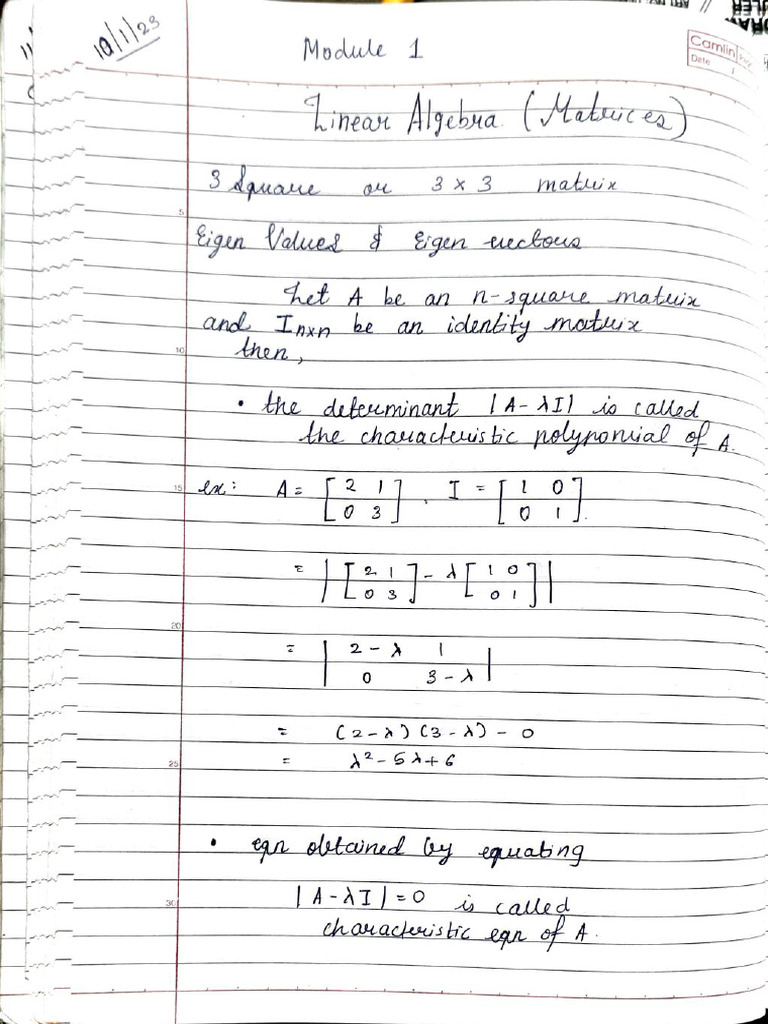 10/1/23
Module 1
Camlin
Date
Linear Algebra (Matrices)
3 Square or 3 × 3 matrix
5
Eigen Values & Eigen vectors
Let A be an n-square matrix
and Inxn be an identity matrix
10
then,
• the determinant |A-λI| is called
the characteristic polynomial of A.
15
ex: A = [ 2 1 , I = [ 1 0
0 3 ] 0 1 ].
= | [ 2 1 - λ [ 1 0
0 3 ] 0 1 ] |
20
= | 2 - λ 1
0 3 - λ |
= (2-λ)(3-λ) - 0
25
= λ² - 5λ + 6
• eqn obtained by equating
30
|A-λI| = 0 is called
characteristic eqn of A.